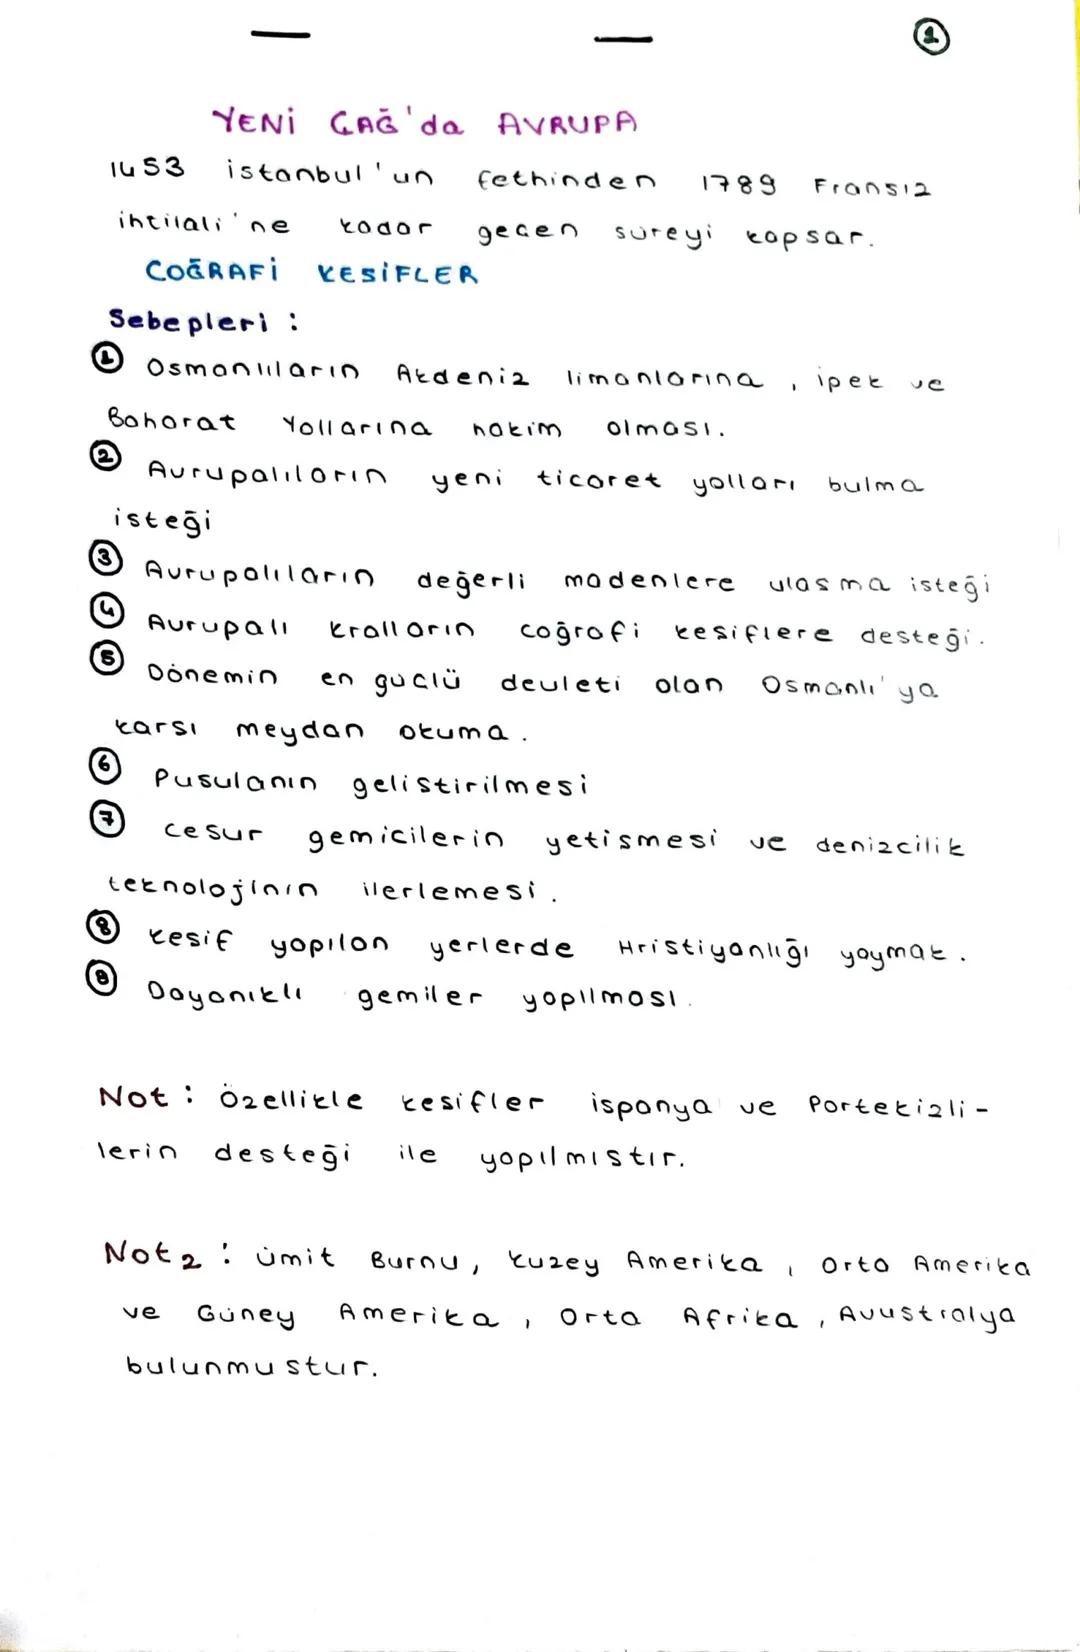 1
YENİ ÇAĞ'da AVRUPA
1453 istanbul'un fethinden 1789 Fransız
ihtilali'ne kadar geçen süreyi kapsar.
COĞRAFİ KESİFLER
Sebepleri :
1 Osmanlıların Akdeniz limanlarına, ipek ve
Baharat Yollarına hakim olması.
2 Avrupalıların yeni ticaret yolları bulma
isteği
3 Avrupalıların değerli madenlere ulasma isteği
4 Avrupalı kralların coğrafi kesiflere desteği.
5 Dönemin en güçlü devleti olan Osmanlı'ya
karsı meydan okuma.
6 Pusulanın gelistirilmesi
7 cesur gemicilerin yetismesi ve denizcilik
teknolojinin ilerlemesi.
8 kesif yapılan yerlerde Hristiyanlığı yaymak.
9 Dayanıklı gemiler yapılması.
Not : Özellikle kesifler ispanya ve Portekizli-
lerin desteği ile yapılmıstır.
Not2 : ümit Burnu, kuzey Amerika, Orta Amerika
ve Güney Amerika, Orta Afrika, Avustralya
bulunmustur.